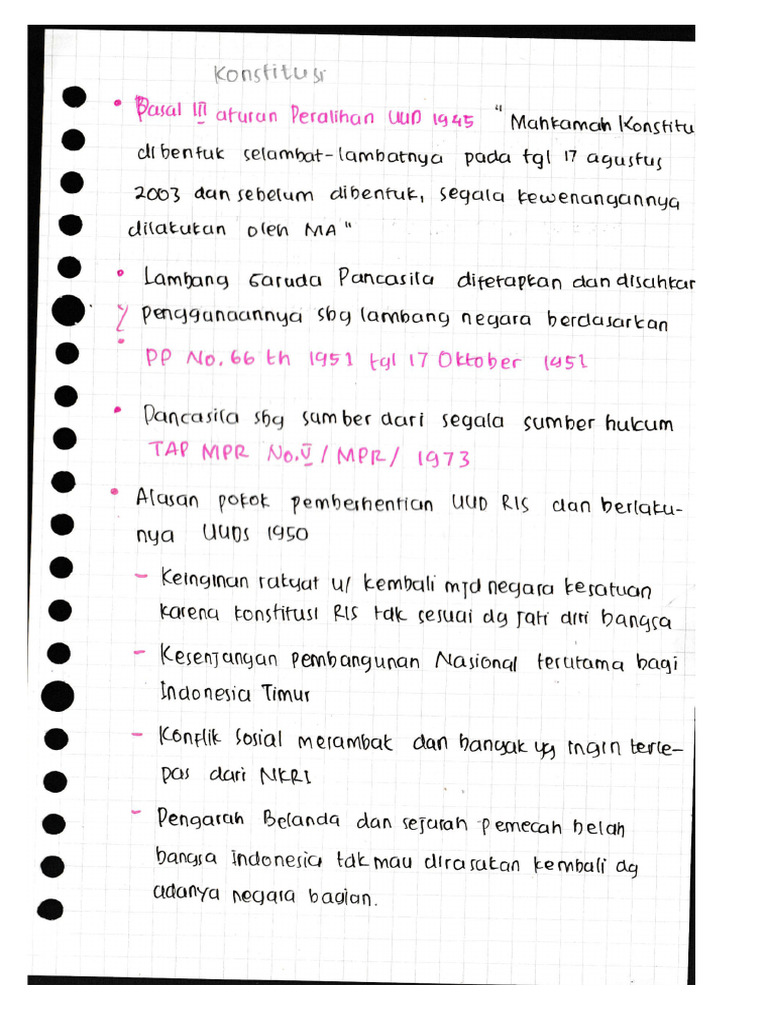 Konstitusi
• Pasal III aturan Peralihan UUD 1945 "Mahkamah Konstitu
dibentuk selambat-lambatnya pada tgl 17 agustus
2003 dan sebelum dibentuk, segala kewenangannya
dilakukan oleh MA"
• Lambang Garuda Pancasila ditetapkan dan disahkan
penggunaannya sbg lambang negara berdasarkan
PP No. 66 th 1951 tgl 17 Oktober 1951
• Pancasila sbg sumber dari segala sumber hukum
TAP MPR No. V / MPR / 1973
• Alasan pokok pemberhentian UUD RIS dan berlaku-
nya UUDS 1950
- Keinginan rakyat u/ kembali mjd negara kesatuan
karena konstitusi RIS tdk sesuai dg jati diri bangsa
- Kesenjangan pembangunan Nasional terutama bagi
Indonesia Timur
- Konflik sosial merambak dan banyak yg ingin terle-
pas dari NKRI
- Pengarah Belanda dan sejurah pemecah belah
bangsa Indonesia tdk mau dirasakan kembali dg
adanya negara bagian.